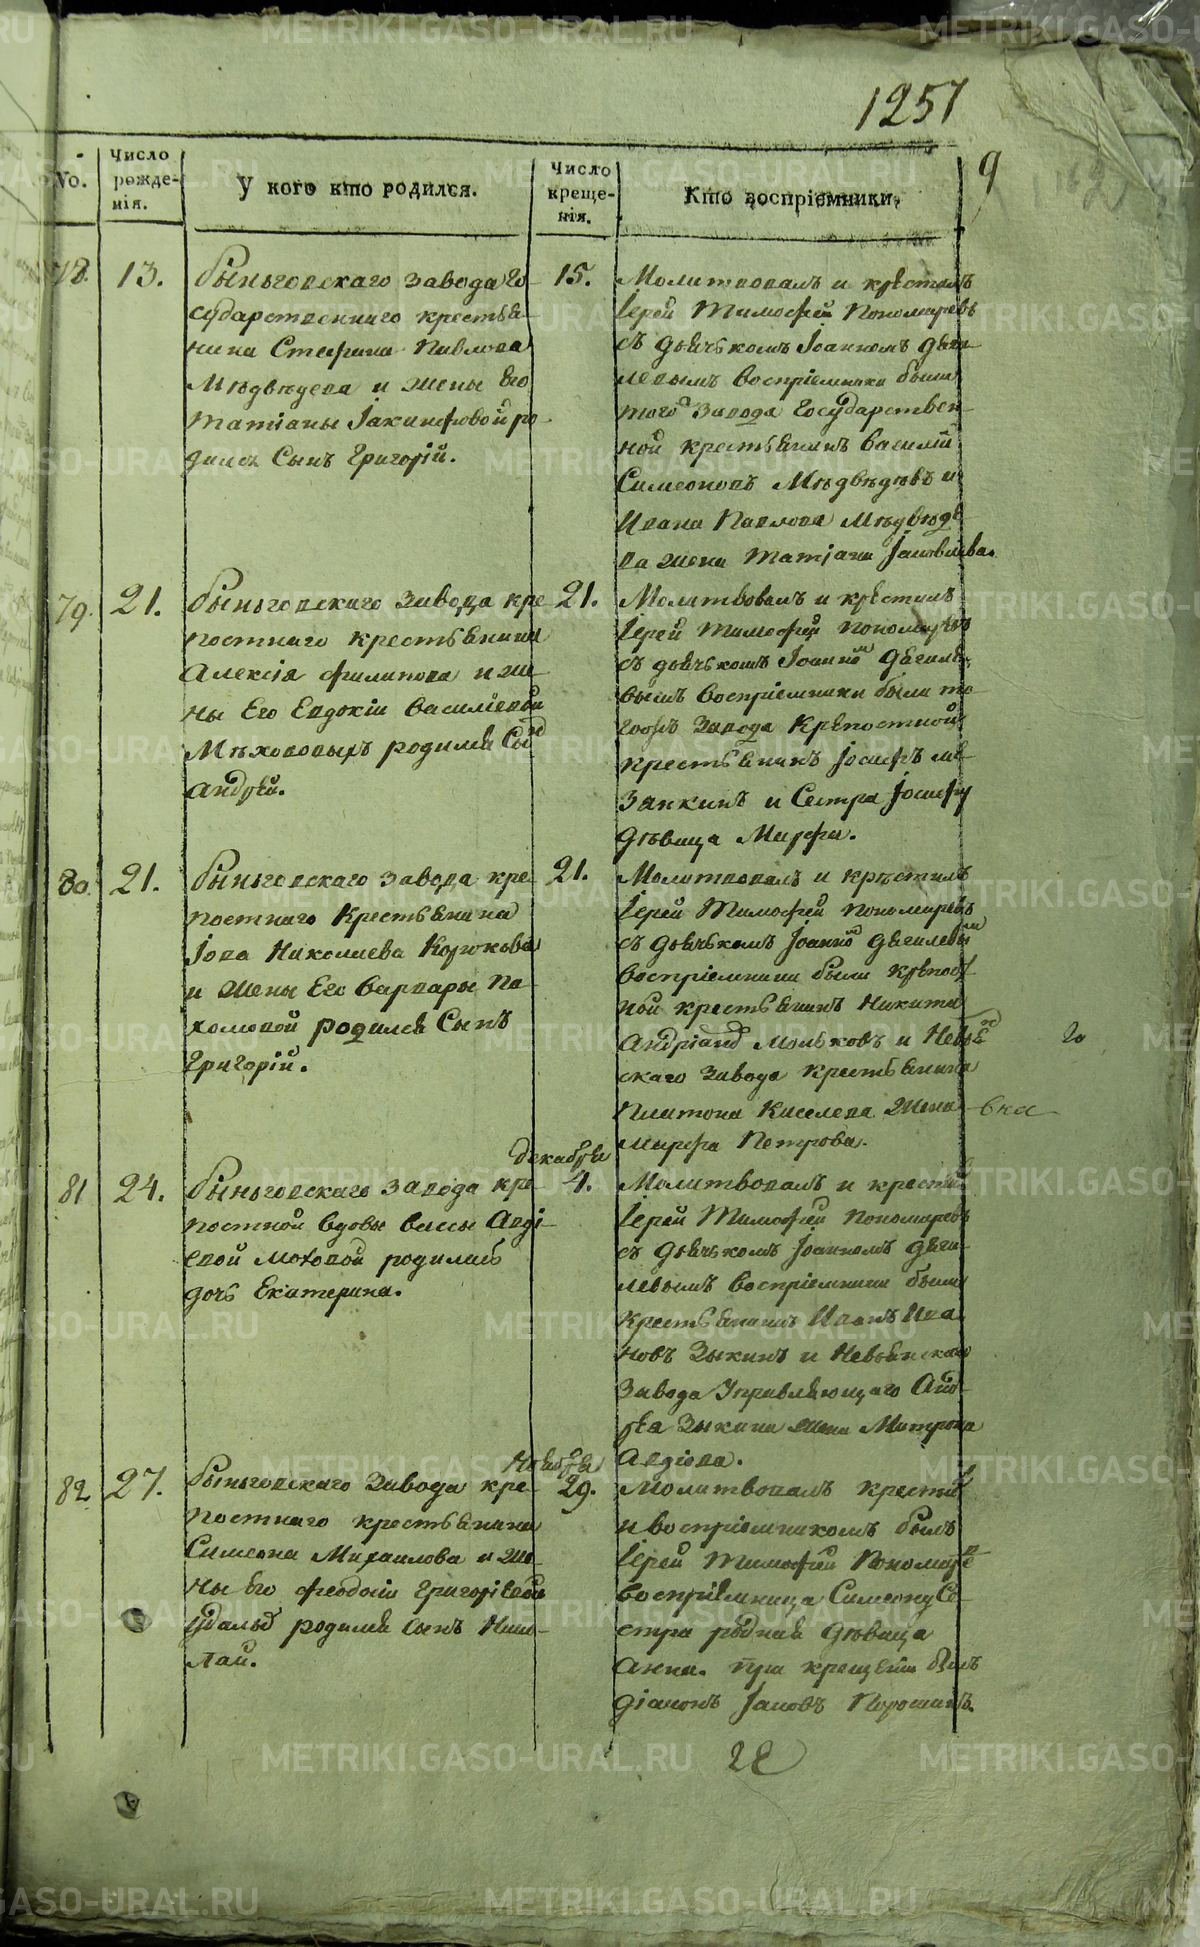 1257
9
No.
Число рожде-нія.
У кого кто родился.
Число креще-нія.
Кто воспріемники.
78.
13.
Быньговскаго завода го-
сударственнаго крестья-
нина Стефана Павлова
Мѣдвѣдева и жены его
Татіаны Іакинфовой ро-
дился Сынъ Григорій.
15.
Молитвовалъ и крестилъ
Іерей Тимофей Пономаревъ
съ дьячькомъ Іоанномъ Дяги-
левымъ воспріемники были
того завода Государствен-
ной крестьянинъ Василій
Симеоновъ Мѣдвѣдевъ и
Ивана Павлова Мѣдвѣде
ва жена Татіана Іаковлева.
79.
21.
Быньговскаго завода кре-
постнаго крестьянина
Алексія Филипова и же-
ны Его Евдокіи Василіевой
Мѣховыхъ родился Сынъ
Андрей.
21.
Молитвовалъ и крестилъ
Іерей Тимофей Пономаревъ
съ дьячькомъ Іоанномъ Дягиле-
вымъ воспріемники были то-
гожъ завода Крепостной
крестьянинъ Іосифъ
и Сестра Іосифу
дѣвица Марфа.
80.
21.
Быньговскаго завода кре-
постнаго Крестьянина
Іова Николаева Корюкова
и жены Его Варвары Па-
хомовой родился Сынъ
Григорій.
21.
Молитвовалъ и крѣстилъ
Іерей Тимофей Пономаревъ
съ дьячькомъ Іоанномъ Дягилевым
воспріемники были крепост
ной крестьянинъ Никита
Андріановъ и Невьян
скаго завода крестьянина
Платона Киселева жена
Марфа Петрова.
81
24.
Быньговскаго завода кре-
постной вдовы Вассы Авді-
евой Моховой родилась
дочь Екатерина.
декабря
4.
Молитвовалъ и крестил
Іерей Тимофей Пономаревъ
съ дьячькомъ Іоанномъ Дяги-
левымъ воспріемники были
крестьянинъ Иванъ Ива-
новъ Зыкинъ и Невьянскаго
завода Управляющаго Анд-
рея Зыкина жена Матрона
Авдіева.
82.
27.
Быньговскаго завода кре-
постнаго крестьянина
Симеона Михаилова и же-
ны Его Феодосіи Григоріевой
родился сынъ Нико-
лай.
Ноября
29.
Молитвовалъ крестил
и воспріемникомъ былъ
Іерей Тимофей Пономаре
воспріемница Симеону Се-
стра родная дѣвица
Анна. при крещеніи былъ
діаконъ Іаковъ Порошинъ.
METRIKI.GASO-URAL.RU